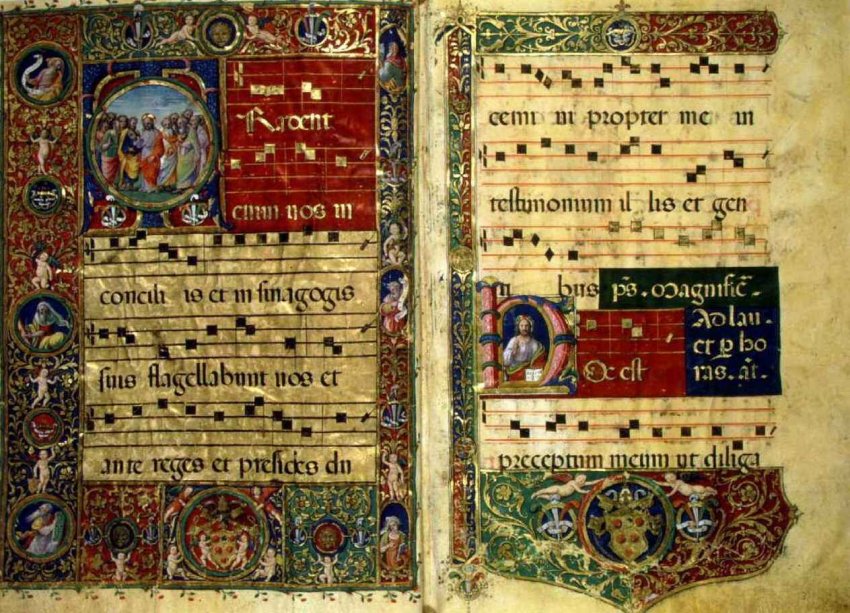 TRadent
enim vos in
concili is et in sinagogis
suis flagellabunt vos et
ante reges et presides du
cemi ni propter me in
testimonium il lis et gen
ti bus ps̄. Magnific̄.
Ad lau.
et ꝑ ho
ras. añ.
HOc est
preceptum meum ut diliga